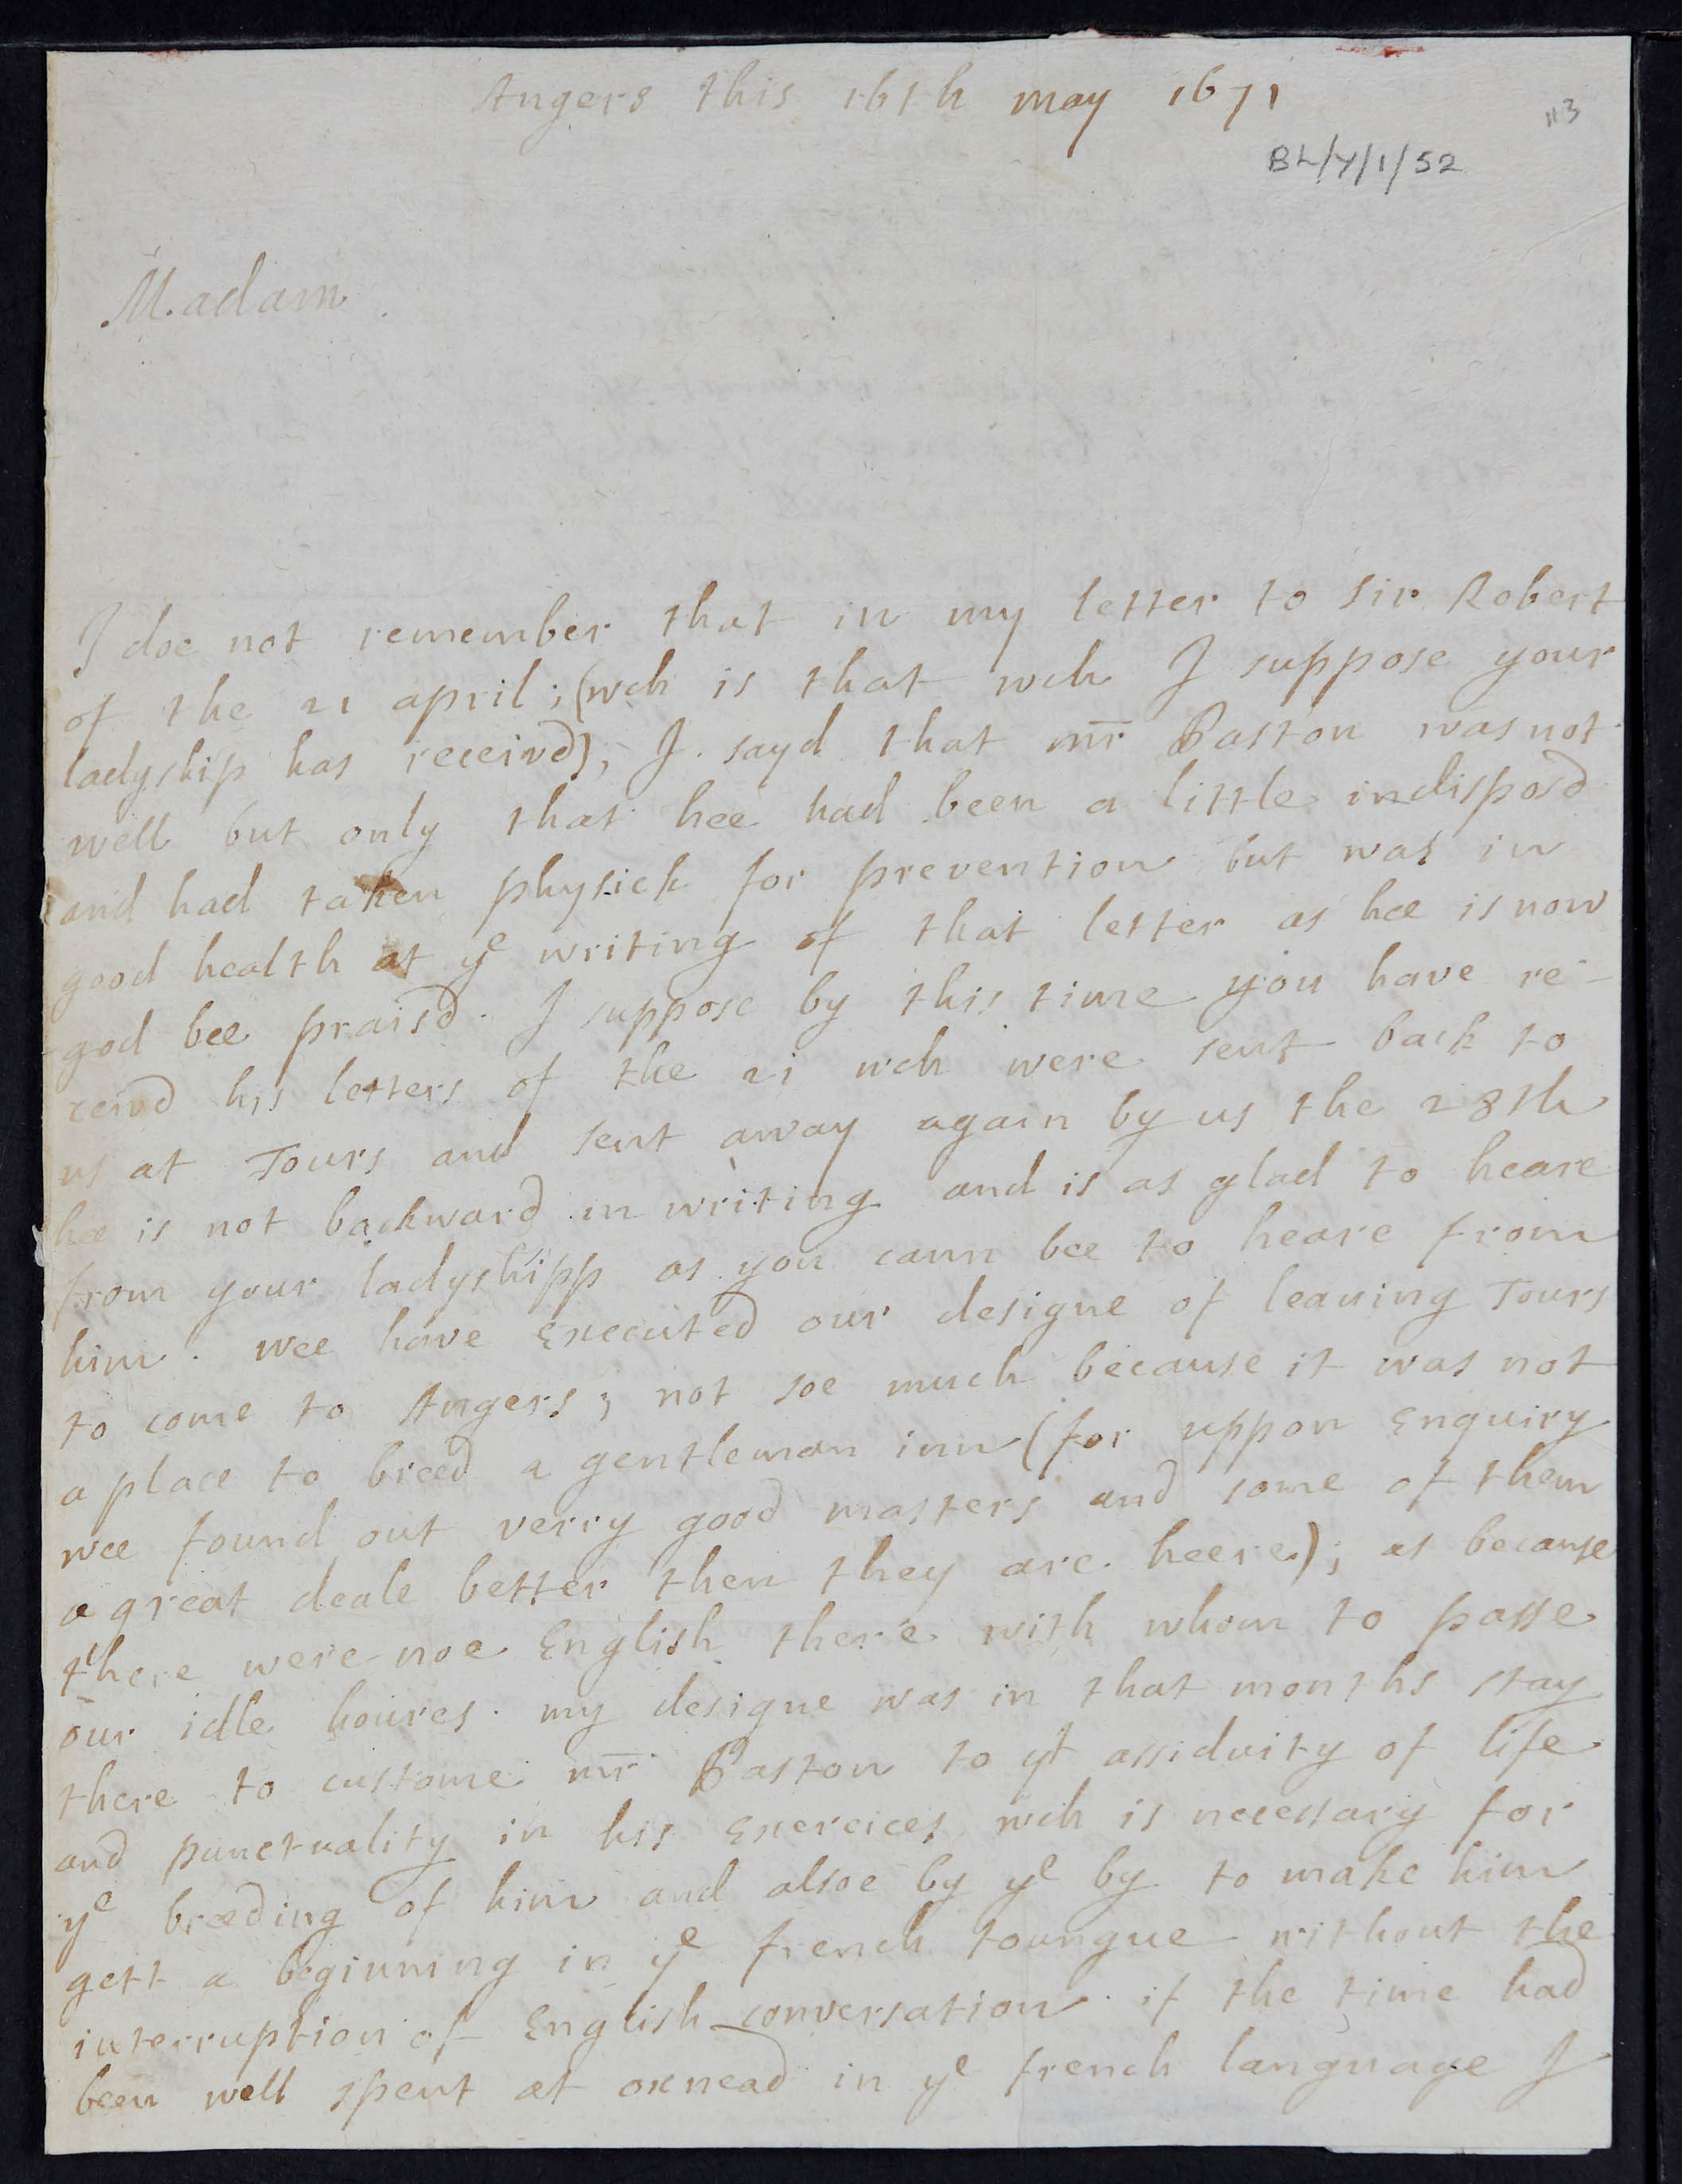 Angers this 16th may 1671
113
BL/Y/1/52
Madam
I doe not remember that in my letter to sir Robert
of the 21 april; (wch is that wch I suppose your
ladyship has receivd), I sayd that mr Paston was not
well but only that hee had been a little indisposd
and had taken physick for prevention but was in
good health at ye writing of that letter as hee is now
god bee praisd. I suppose by this time you have re-
ceivd his letters of the 21 wch were sent back to
us at Tours and sent away again by us the 28th
hee is not backward in writing and is as glad to heare
from your ladyshipp as you cann bee to heare from
him. wee have Executed our designe of leauing Tours
to come to Angers; not soe much because it was not
a place to breed a gentleman inn (for uppon Enquiry
wee found out verry good masters and some of them
a great deale better then they are heere); as because
there were noe English there with whom to passe
our idle houres. my designe was in that months stay
there to custome mr Paston to yt assiduity of life
and punctuality in his Exercices wch is necessary for
ye breeding of him and alsoe by ye by to make him
gett a beginning in ye french toungue without the
interruption of English conversation. if the time had
been well spent at oxnead in ye french language I